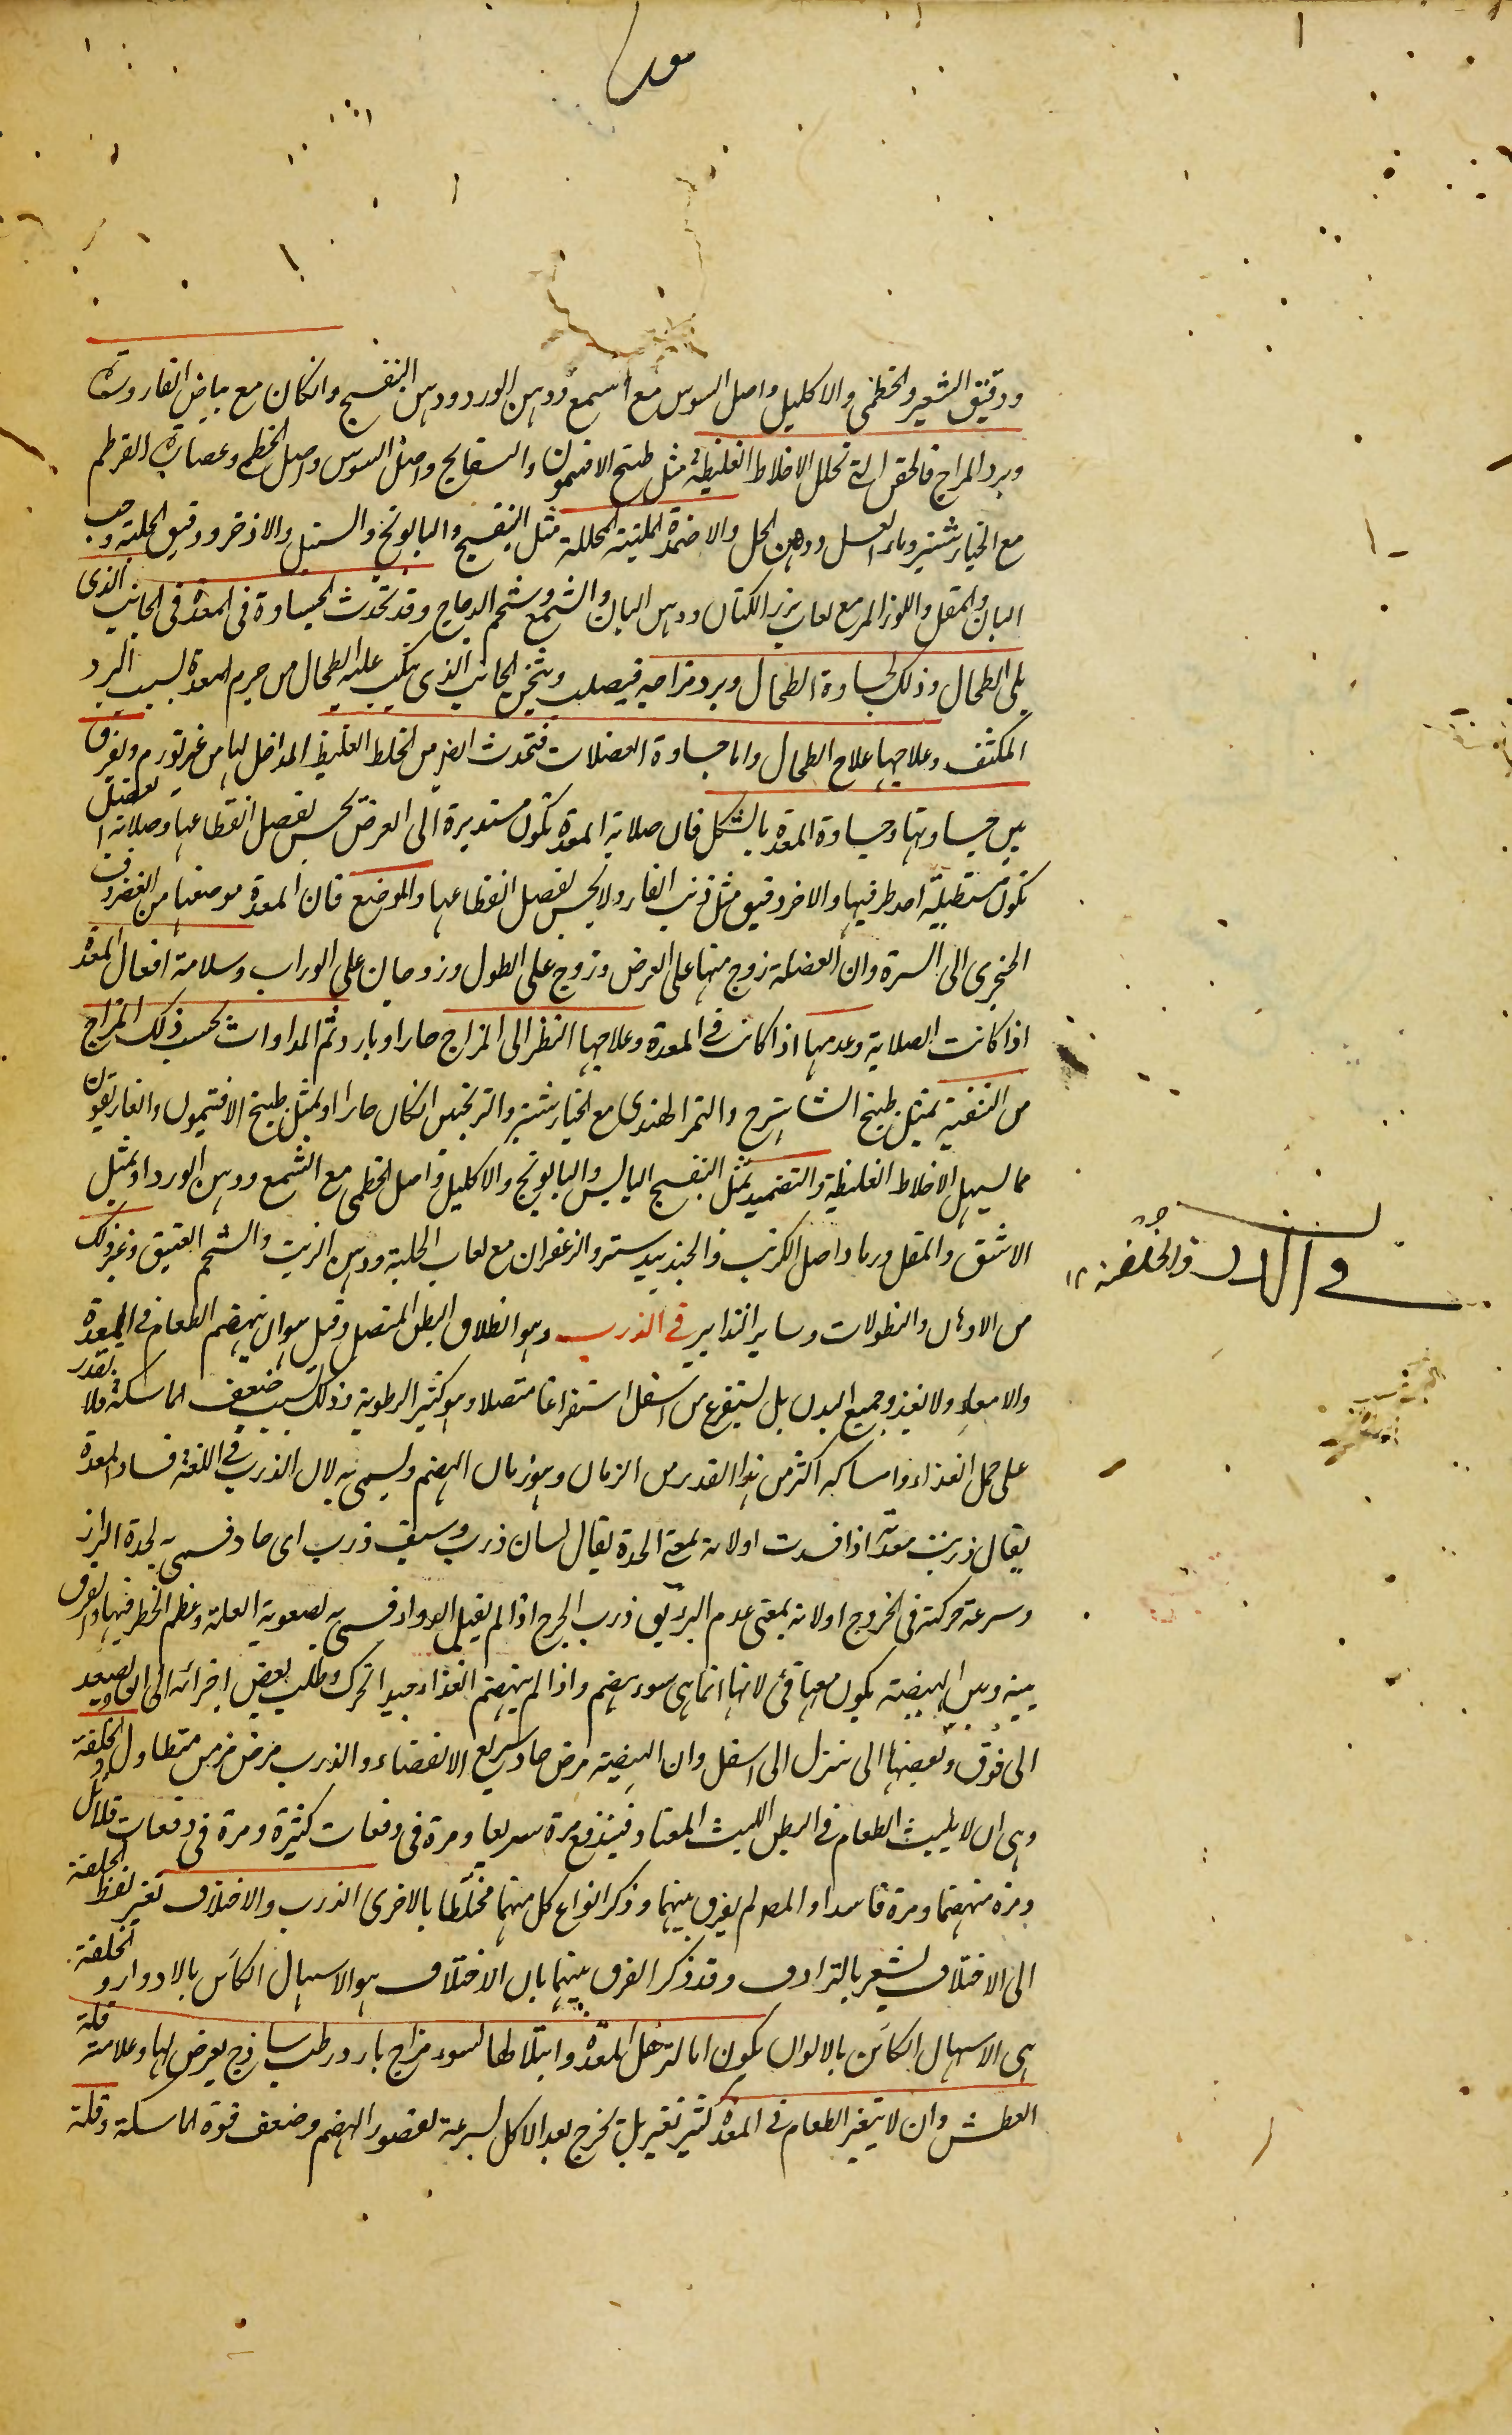 ودقيق الشعير والخطمى والاكليل واصل السوس مع الشمع ودهن الورد ودهن البنفسج وان كان مع بياض القارورة
وبرد المزاج فالحقن التى تحلل الاخلاط الغليظة مثل طبيخ الافتيمون والبسفايج واصل السوس واصل الخطمى وعصارة القرطم
مع الخيارشنبر وماء العسل ودهن الخل والاضمدة الملينة المحللة مثل البنفسج والبابونج والسنبل والاذخر ودقيق الحلبة وحب
البان والمقل واللوز المر مع لعاب بزر الكتان ودهن البان والشمع وشحم الدجاج وقد تحدث الجساوة فى المعدة فى الجانب الذى
يلى الطحال وذلك لجساوة الطحال وبرد مزاجه فيصلب ويثخن الجانب الذى ينكب عليه الطحال من جرم المعدة بسبب البرد
المكثف وعلاجها علاج الطحال واما جساوة العضلات فتحدث ايضا من الخلط الغليظ المداخل لها من غير تورم والفرق
بين جساوتها وجساوة المعدة بالشكل فان صلابة المعدة تكون مستديرة الى العرض يحس بفصل انقطاعها وصلابة العضل
تكون مستطيلة احد طرفيها والاخر دقيق مثل ذنب الفار ولا يحس بفصل انقطاعها والموضع فان المعدة موضعها من الغضروف
الخنجرى الى السرة وان العضلة زوج منها على العرض وزوج على الطول وزوجان على الوراب وسلامة افعال المعدة
اذا كانت الصلابة وعدمها اذا كانت فى المعدة وعلاجها النظر الى المزاج حارا وبارد ثم المداوات بحسب ذلك المزاج
من التنقية بمثل طبيخ الشاهترج والتمر الهندى مع الخيارشنبر والترنجبين ان كان حارا او بمثل طبيخ الافتيمون والغاريقون
مما يسهل الاخلاط الغليظة والتضميد بمثل البنفسج اليابس والبابونج والاكليل واصل الخطمى مع الشمع ودهن الورد او بمثل
الاشق والمقل ورماد اصل الكرنب والجندبيدستر والزعفران مع لعاب الحلبة ودهن الزيت والشحم العتيق وغير ذلك
من الادهان والنطولات وساير التدابير فى الذرب وهو انطلاق البطن المتصل وقيل هو ان ينهضم الطعام فى المعدة
والامعاء ولا يغذو جميع البدن بل يستفرغ من اسفل استفراغا متصلا وهو كثير الرطوبة وذلك بسبب ضعف الماسكة فلا يقدر
على حمل الغذاء وامساكه اكثر من هذا القدر من الزمان وهو زمان الهضم ويسمى به لان الذرب فى اللغة فساد المعدة
يقال ذربت معدته اذا فسدت او لانه بمعنى الحدة يقال لسان ذرب وسيف ذرب اى حاد فسمى به لحدة البراز
وسرعة حركته فى الخروج او لانه بمعنى عدم البرء يق ذرب الجرح اذا لم يقبل الدواء فسمى به لصعوبة العلة وعظم الخطر فيها والفرق
بينه وبين الهيضة يكون معها قئ لانها انما هى سوء هضم واذا لم ينهضم الغذاء جيدا تحرك وطلب بعض اجزائه الى ان يصعد
الى فوق وبعضها الى ان ينزل الى اسفل وان الهيضة مرض حاد سريع الانقضاء والذرب مرض مزمن متطاول والخلفة
وهى ان لا يلبث الطعام فى البطن اللبث المعتاد فيندفع مرة سريعا ومرة فى دفعات كثيرة ومرة فى دفعات قلائل
ومرة منهضما ومرة فاسدا والمص لم يفرق بينهما وذكر انواع كل منهما مختلطا بالاخرى الذرب والاختلاف تغيير لفظ الخلفة
الى الاختلاف يشعر بالترادف وقد ذكر الفرق بينهما بان الاختلاف هو الاسهال الكائن بالادوار والخلفة
هى الاسهال الكائن بالالوان يكون اما لترهل المعدة وابتلاطها لسوء مزاج بارد رطب ساذج يعرض لها وعلامته قلة
العطش وان لا يتغير الطعام فى المعدة كثير تغير بل يخرج بعد الاكل بسرعة لقصور الهضم وضعف قوة الماسكة وقلة
فى الذرب والخلفة ١٢